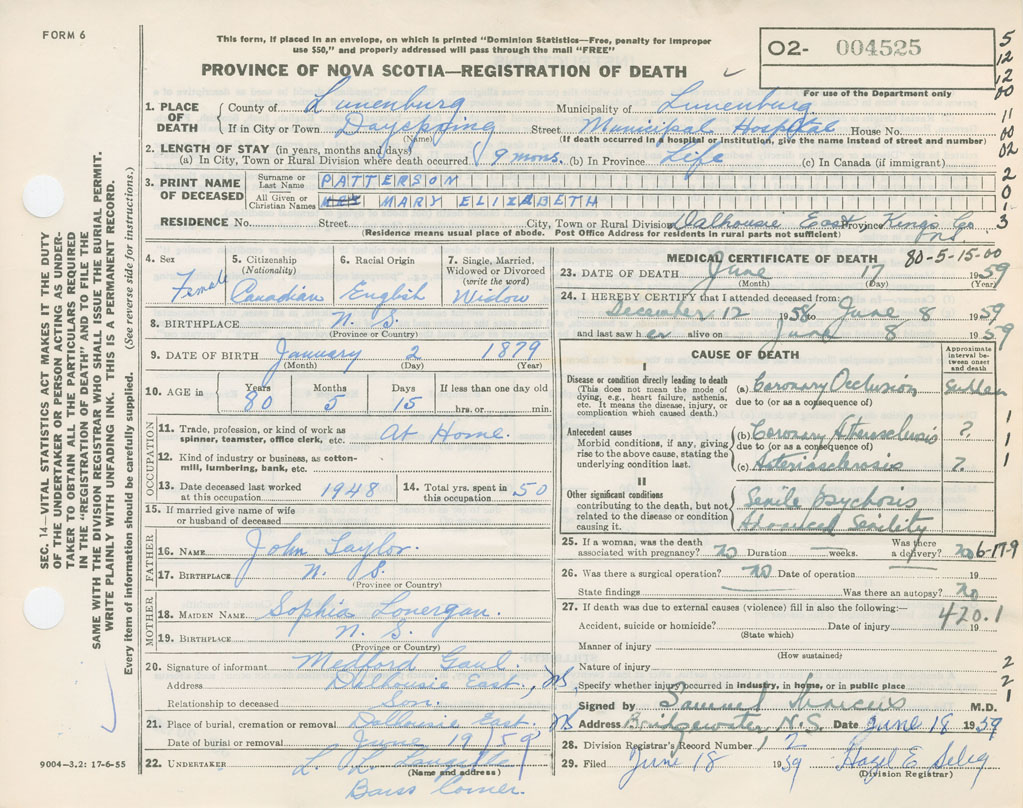 FORM 6
This form, if placed in an envelope, on which is printed "Dominion Statistics—Free, penalty for improper
use $50," and properly addressed will pass through the mail "FREE"
PROVINCE OF NOVA SCOTIA—REGISTRATION OF DEATH
O2- 004525
For use of the Department only
5
12
12
00
11
00
02
2
0
1
3
1. PLACE OF DEATH County of Lunenburg Municipality of Lunenburg
If in City or Town Street Municipal Hospital House No.
(Name) (If death occurred in a hospital or institution, give the name instead of street and number)
2. LENGTH OF STAY (in years, months and days)
(a) In City, Town or Rural Division where death occurred 9 mons. (b) In Province Life (c) In Canada (if immigrant)
3. PRINT NAME OF DECEASED Surname or Last Name PATTERSON
All Given or Christian Names MARY ELIZABETH
RESIDENCE No. Street City, Town or Rural Division Dalhousie East Province Kings Co NS
(Residence means usual place of abode. Post Office Address for residents in rural parts not sufficient)
SEC. 14—VITAL STATISTICS ACT MAKES IT THE DUTY
OF THE UNDERTAKER OR PERSON ACTING AS UNDER-
TAKER TO OBTAIN ALL THE PARTICULARS REQUIRED
IN THE "REGISTRATION OF DEATH" AND TO FILE THE
SAME WITH THE DIVISION REGISTRAR WHO SHALL ISSUE THE BURIAL PERMIT.
WRITE PLAINLY WITH UNFADING INK. THIS IS A PERMANENT RECORD.
Every item of information should be carefully supplied. (See reverse side for instructions.)
4. Sex
Female
5. Citizenship
(Nationality)
Canadian
6. Racial Origin
English
7. Single, Married,
Widowed or Divorced
(write the word)
Widow
8. BIRTHPLACE N. S.
(Province or Country)
9. DATE OF BIRTH January 2 1879
(Month) (Day) (Year)
10. AGE in Years Months Days If less than one day old
80 5 15 hrs. or min.
OCCUPATION
11. Trade, profession, or kind of work as
spinner, teamster, office clerk, etc. At Home.
12. Kind of industry or business, as cotton-
mill, lumbering, bank, etc.
13. Date deceased last worked
at this occupation 1948
14. Total yrs. spent in
this occupation 50
15. If married give name of wife
or husband of deceased
FATHER
16. NAME John Taylor.
17. BIRTHPLACE N. S.
(Province or Country)
MOTHER
18. MAIDEN NAME Sophia Lonergan.
19. BIRTHPLACE N. S.
(Province or Country)
20. Signature of informant Medford Gaul.
Address Dalhousie East, NS
Relationship to deceased Son.
21. Place of burial, cremation or removal Dalhousie East. NS
Date of burial or removal June 19 1959
22. UNDERTAKER L. L. Langille
(Name and address)
Barss Corner.
9004—3.2: 17-6-55
MEDICAL CERTIFICATE OF DEATH 80-5-15-00
23. DATE OF DEATH June 17 1959
(Month) (Day) (Year)
24. I HEREBY CERTIFY that I attended deceased from:
December 12 1958 to June 8 1959
and last saw her alive on June 8 1959
CAUSE OF DEATH
Approximate
interval be-
tween onset
and death
I
Disease or condition directly leading to death
(This does not mean the mode of
dying, e.g., heart failure, asthenia,
etc. It means the disease, injury, or
complication which caused death.)
(a) Coronary Occlusion Sudden
due to (or as a consequence of)
Antecedent causes
Morbid conditions, if any, giving
rise to the above cause, stating the
underlying condition last.
(b) Coronary Atherosclerosis ?
due to (or as a consequence of)
(c) Arteriosclerosis ?
1
1
1
II
Other significant conditions
contributing to the death, but not
related to the disease or condition
causing it.
Senile Psychosis
Advanced Senility
25. If a woman, was the death
associated with pregnancy? no Duration weeks. Was there a delivery? no 6-17-9
26. Was there a surgical operation? no Date of operation 19
State findings Was there an autopsy? no
27. If death was due to external causes (violence) fill in also the following:—
420.1
Accident, suicide or homicide? Date of injury 19
(State which)
Manner of injury
(How sustained)
Nature of injury
Specify whether injury occurred in industry, in home, or in public place
2
2
1
Signed by Samuel Marcus M.D.
Address Bridgewater, N.S. Date June 18 1959
28. Division Registrar's Record Number 2
29. Filed June 18 1959 Hazel E Selig
(Division Registrar)